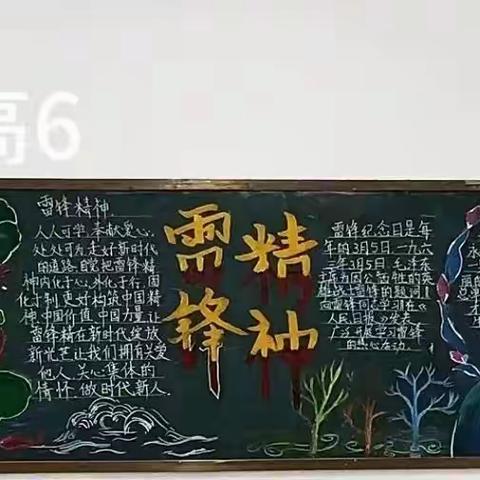 高6
雷锋精神
雷锋精神
人人可学 奉献爱心
处处可为 走好新时代
的道路 自觉把雷锋精
神内化于心 外化于行 固
化于制 更好构筑中国精
神 中国价值 中国力量 让
雷锋精神在新时代绽放
新光芒 让我们拥有关爱
他人 关心集体的
情怀 做时代新人
雷锋纪念日是每
年的3月5日 一九六
三年3月5日 毛泽东
主席为因公牺牲的英
雄战士雷锋的题词
向雷锋同志学习在《
人民日报》发表
广泛开展学习雷锋
的热心活动.
永